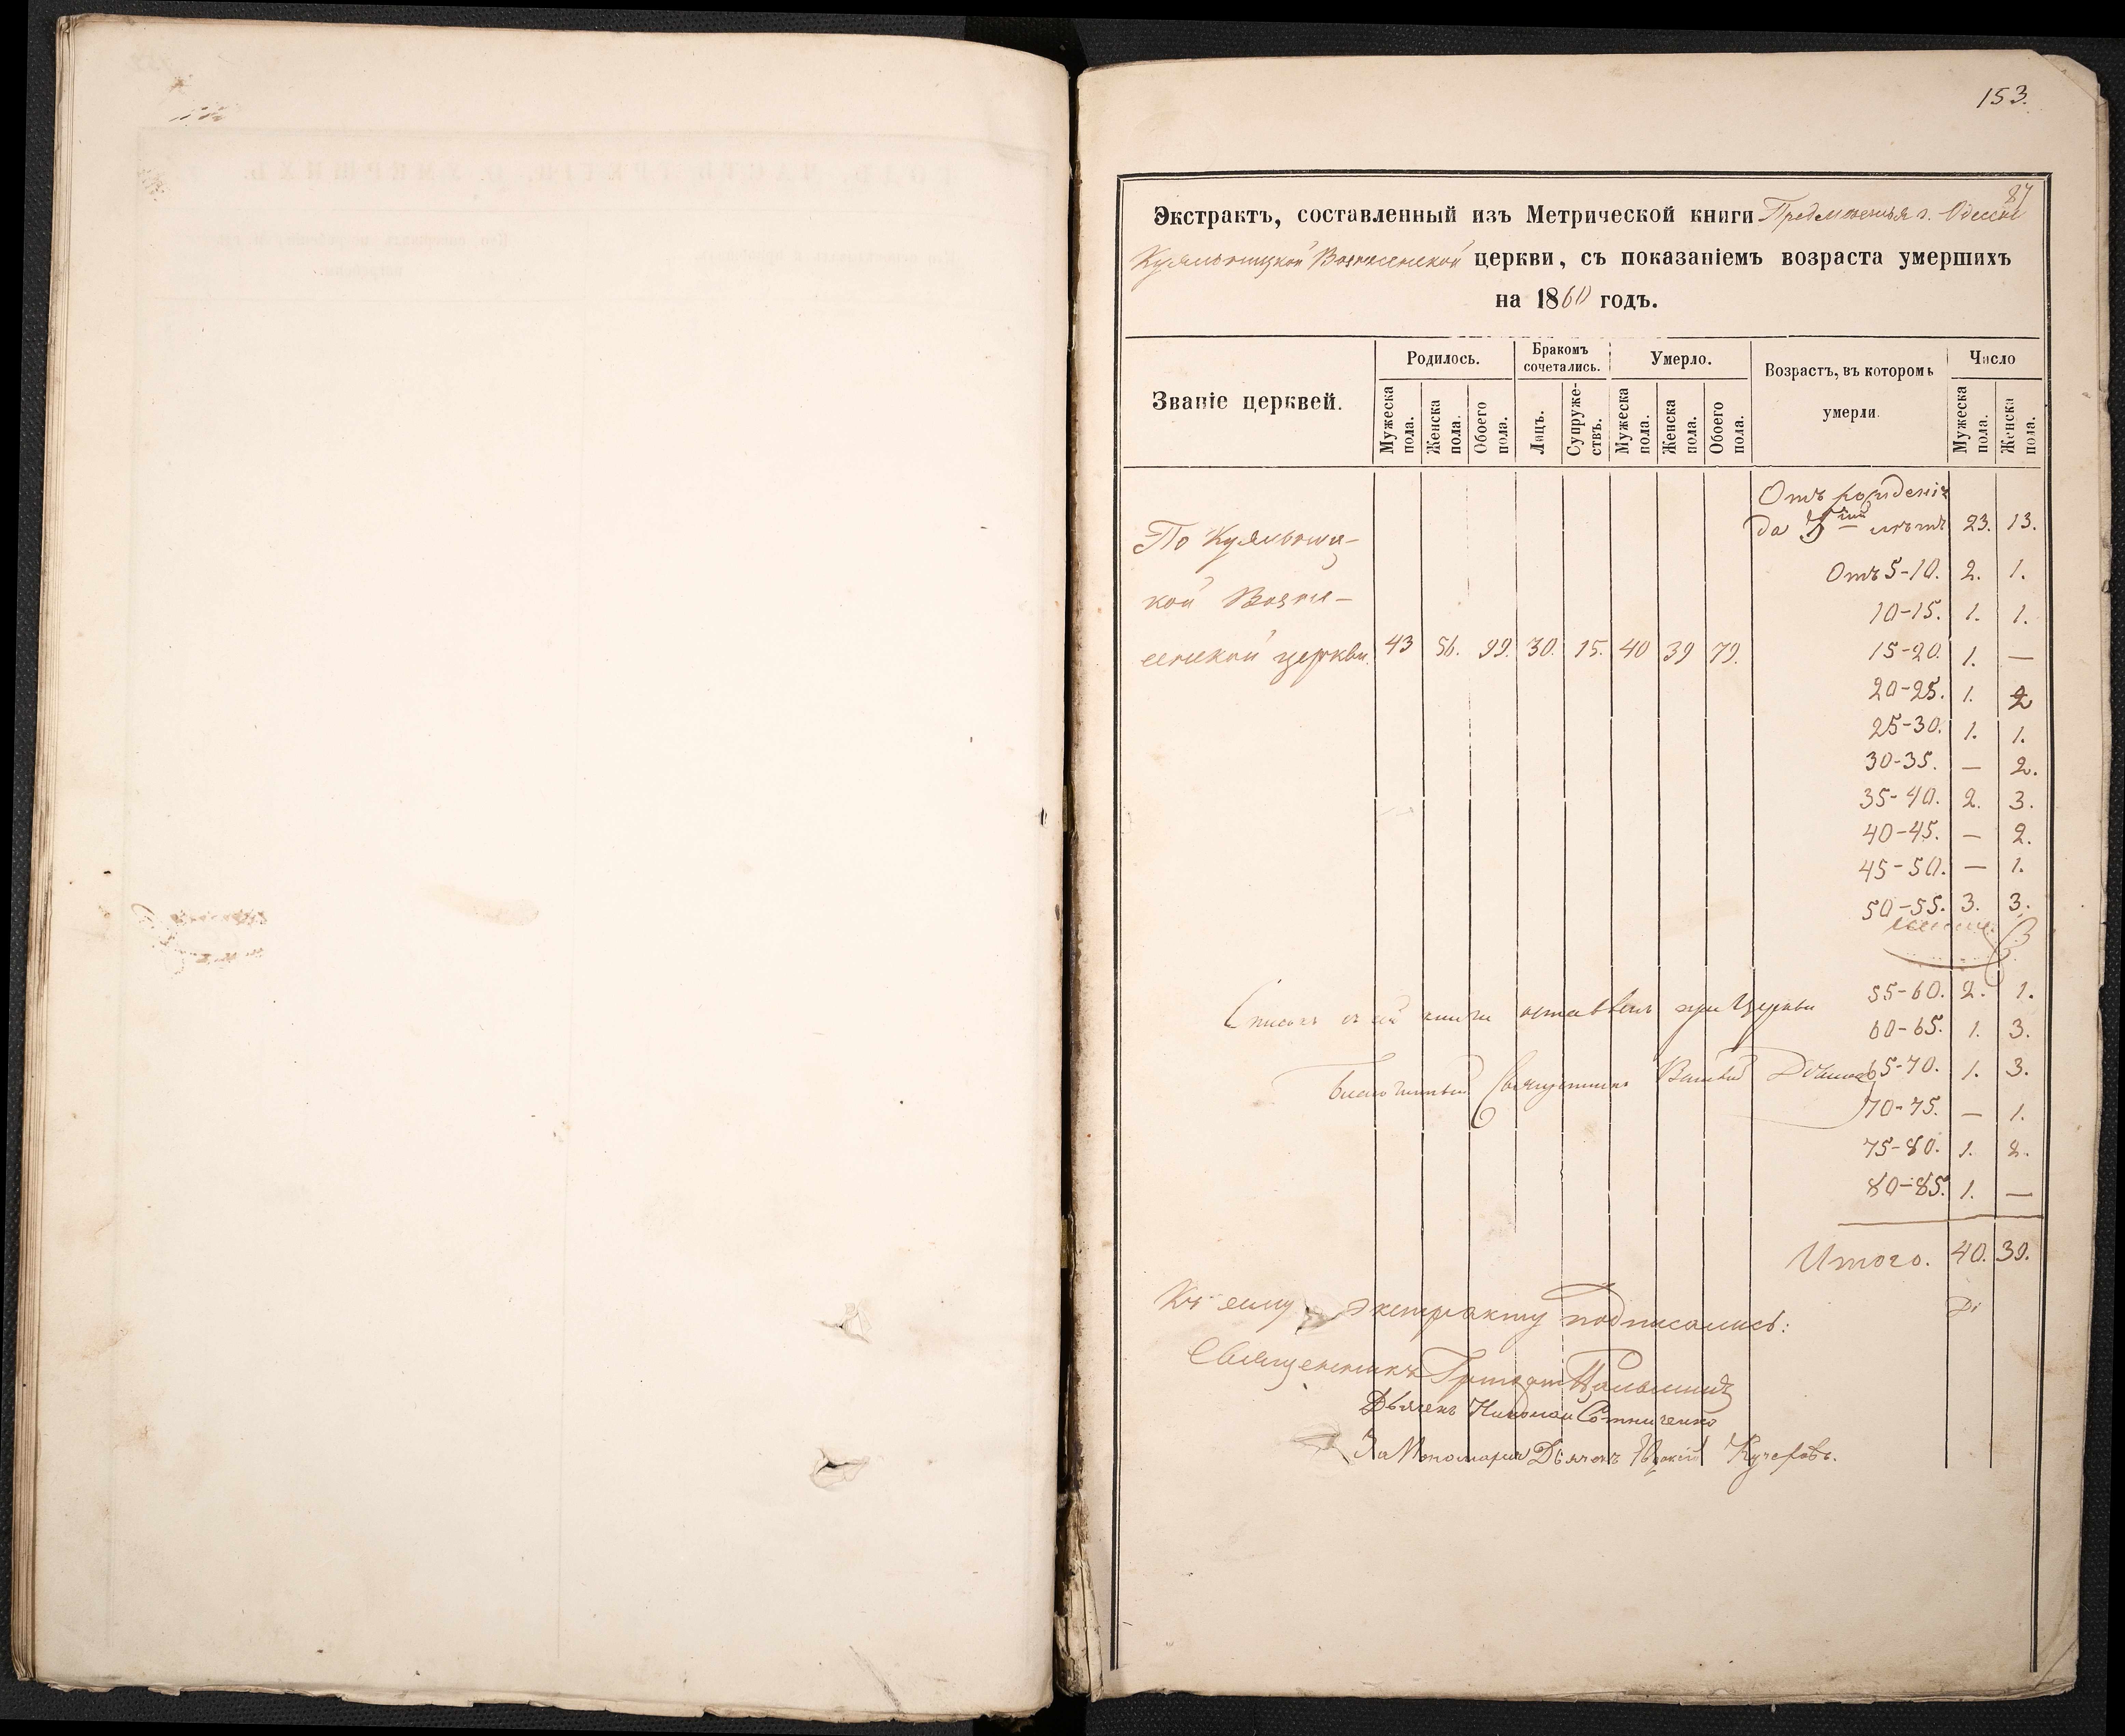 153.
87
Экстрактъ, составленный изъ Метрической книги Предместья г. Одессы
Куяльницкой Вознесенской церкви, съ показаніемъ возраста умершихъ
на 1860 годъ.
Званіе церквей.
Родилось.
Бракомъ сочетались.
Умерло.
Возрастъ, въ которомъ умерли.
Число
Мужеска пола.
Женска пола.
Обоего пола.
Лицъ.
Супружествъ.
Мужеска пола.
Женска пола.
Обоего пола.
Мужеска пола.
Женска пола.
Отъ рожденія
да 5 ти лѣтъ 23. 13.
По Куяльниц-
Отъ 5-10. 2. 1.
кой Возне-
10-15. 1. 1.
сенской церкви. 43 56. 99. 30. 15. 40 39 79.
15-20. 1. —
20-25. 1. 2
25-30. 1. 1.
30-35. — 2.
35-40. 2. 3.
40-45. — 2.
45-50. — 1.
50-55. 3. 3.
55-60. 2. 1.
Списокъ съ сей книги оставленъ при Церкви
60-65. 1. 3.
65-70. 1. 3.
Благочинный Священникъ
70-75. — 1.
75-80. 1. 2.
80-85. 1. —
Итого. 40. 39.
Къ сему экстракту подписались:
Священникъ Григорій
Дьячекъ Николай Сотниченко
За Пономаря Дьячекъ Кучеровъ.